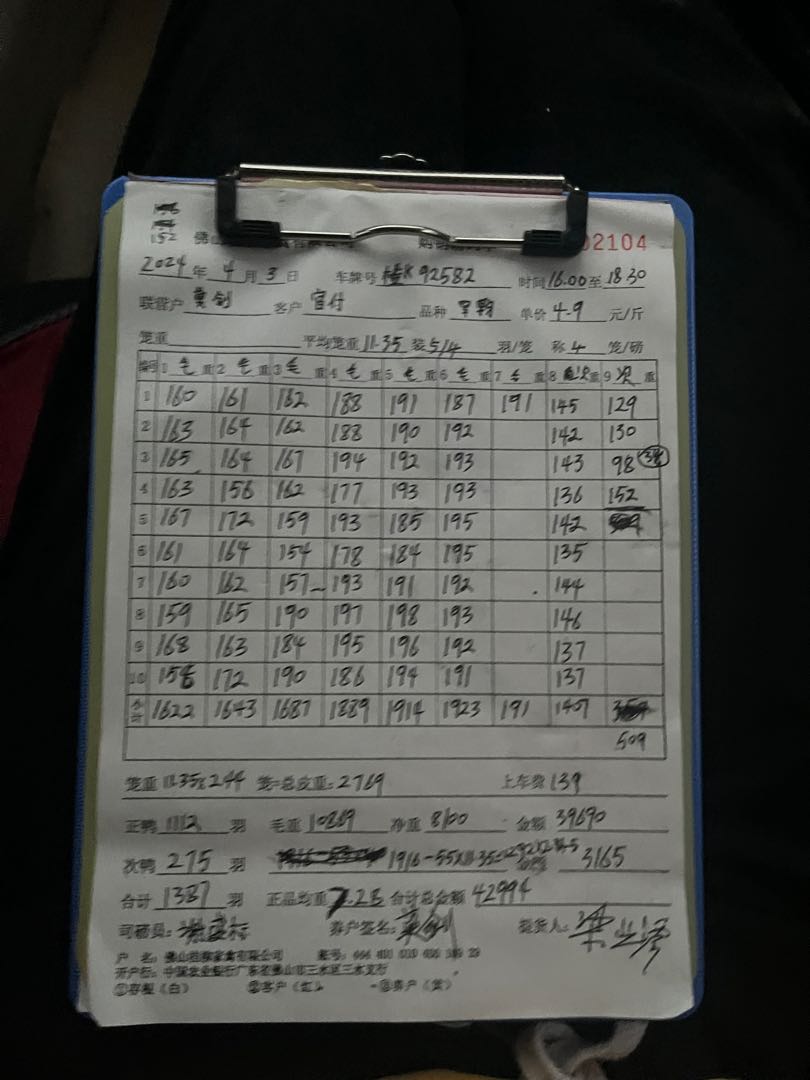 152 佛山
02104
2024年4月3日 车牌号 桂K92582 时间16.00至18.30
联营户 莫创 客户 官什 品种 单价4.9元/斤
笼重 平均笼重11.35 装5/4 羽/笼 称4 笼/磅
编号 1毛重 2毛重 3毛重 4毛重 5毛重 6毛重 7毛重 8次重 9次重
1 160 161 162 188 191 187 191 145 129
2 163 164 162 188 190 192 142 130
3 165 164 167 194 192 193 143 98 38
4 163 156 162 177 193 193 136 152
5 167 172 159 193 185 195 142
6 161 164 154 178 184 195 135
7 160 162 157 193 191 192 144
8 159 165 190 197 198 193 146
9 168 163 184 195 196 192 137
10 158 172 190 186 194 191 137
小计 1622 1643 1687 1889 1914 1923 191 1407
509
笼重11.35x244 笼=总皮重:2769 上车费139
正鸭1112羽 毛重10869 净重8100 金额39690
次鸭275羽 1916-55x11.35= 金额3165
合计1387羽 正品均重7.28 合计总金额42994
司磅员: 养户签名:莫创 提货人:
户 名:佛山 家禽有限公司 账号:
开户行:中国农业银行广东省佛山市三水区三水支行
①存根(白) ②客户(红) ③养户(黄)